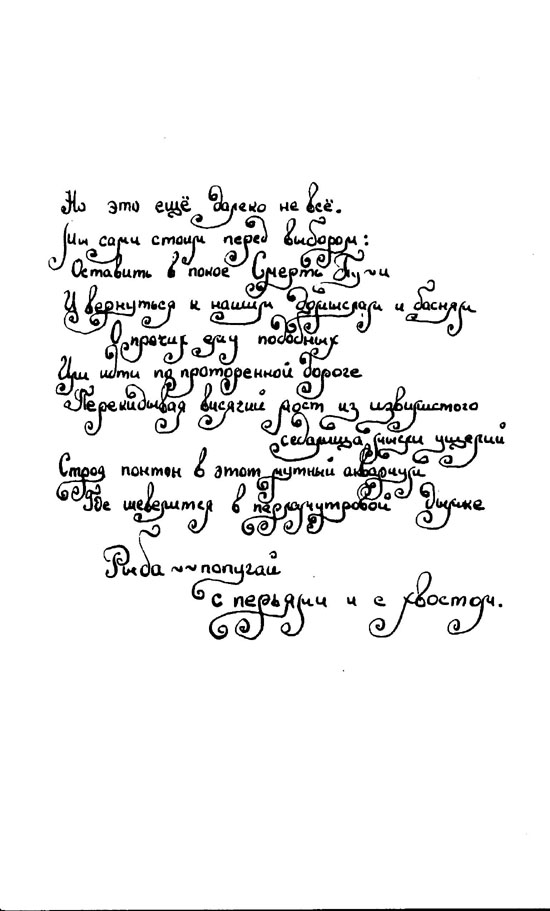 Но это ещё далеко не всё.
Мы сами стоим перед выбором:
Оставить в покое Смерть Тучи
И вернуться к нашим домыслам и басням
О прочих ему подобных
Или идти по проторенной дороге
Перекидывая висячий мост из извилистого
ущелий
Строя понтон в этот мутный аквариум
Где шевелится в перламутровой дымке
Рыба ~~попугай
с перьями и с хвостом.